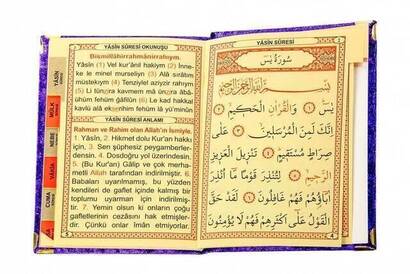 YÂSÎN SÛRESİ OKUNUŞU
Bismillâhirrahmânirrahym.
Yâsîn (1) Vel kur'ânil hakiym (2) İnne-
ke le minel murseliyn (3) Alâ sırâtım
müstekıym (4) Tenziylel aziyzirrahıym
(5) Li tünzira kavmem mâ ünzira âbâ-
ühüm fehüm ğâfilûn (6) Le kad hakkal
kavlü alâ ekserihim fehüm lâ yü'minûn
YÂSÎN SÛRESİ ANLAMI
Rahman ve Rahim olan Allah'ın İsmiyle.
1. Yâsîn, 2. Hikmet dolu Kur'an hakkı
için, 3. Sen şüphesiz peygamberler-
densin. 4. Dosdoğru yol üzerindesin.
5. (Bu Kur'an) Gâlip ve çok merha-
metli Allah tarafından indirilmiştir. 6.
Babaları uyarılmamış, bu yüzden
kendileri de gaflet içinde kalmış bir
toplumu uyarman için indirilmiş-
tir. 7. Yemin olsun ki onların çoğu
gafletlerinin cezasını hak etmişler-
dir. Çünkü onlar îman etmiyorlar.
YÂSİN
MÜLK
NEBE
VAKIA
CUMA
YÂSÎN SÛRESİ
سُورَةُ يٰسٓ
بِسْمِ اللّٰهِ الرَّحْمٰنِ الرَّحِيمِ
يٰسٓ ﴿١﴾ وَالْقُرْاٰنِ الْحَكِيمِ ﴿٢﴾
اِنَّكَ لَمِنَ الْمُرْسَلِينَ ﴿٣﴾ عَلٰى
صِرَاطٍ مُسْتَقِيمٍ ﴿٤﴾ تَنْزِيلَ الْعَزِيزِ
الرَّحِيمِ ﴿٥﴾ لِتُنْذِرَ قَوْمًا مَٓا اُنْذِرَ
اٰبَٓاؤُ۬هُمْ فَهُمْ غَافِلُونَ ﴿٦﴾ لَقَدْ حَقَّ
الْقَوْلُ عَلٰٓى اَكْثَرِهِمْ فَهُمْ لَا يُؤْمِنُونَ